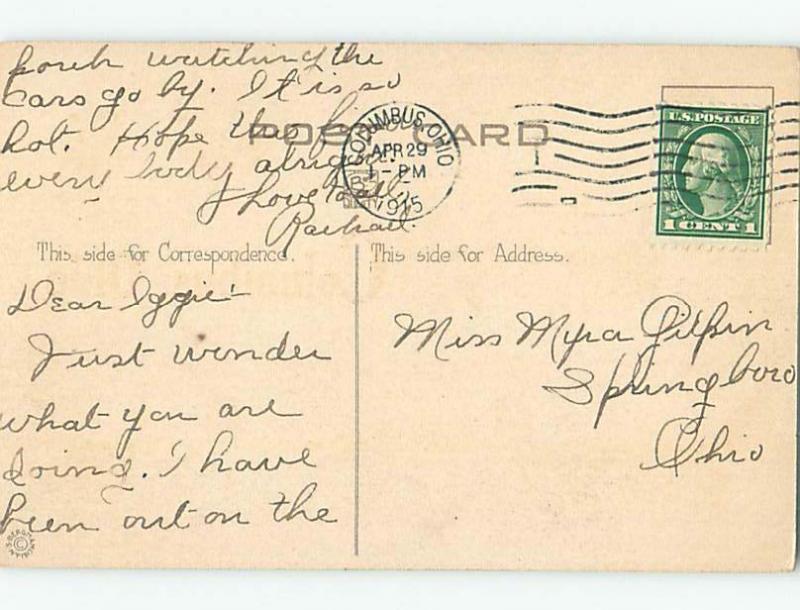 porch watching the
cars go by. It is so
hot. Hope this finds
every body alright.
Love to all,
Rachael.
POST CARD
COLUMBUS, OHIO
APR 29
1 - PM
1915
U.S. POSTAGE
1 CENT 1
This side for Correspondence.
This side for Address.
Dear Iggie!-
Just wonder
what you are
doing. I have
been out on the
Miss Myra Gilpin
Springboro
Ohio